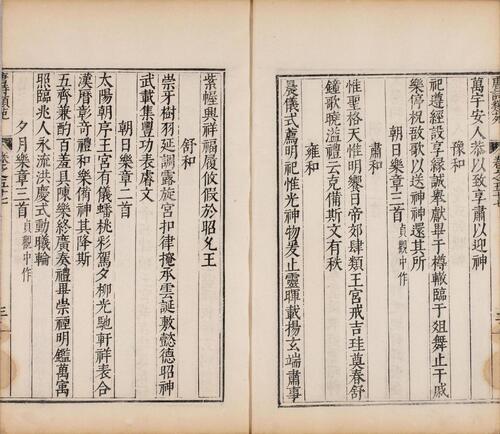 萬宇安人恭以致享肅以迎神
豫和
祀遵經設享緣誠舉獻畢于樽轍臨于爼舞止干戚
樂停柷敔歌以送神神還其所
朝日樂章三首 貞觀中作
肅和
惟聖格天惟明饗日帝郊肆類王宮戒吉珪奠春舒
鐘歌曉溢禮云克備斯文有秩
雍和
晨儀式薦明祀惟光神物爰止靈暉載揚玄端肅事
紫幄興祥福履攸假於昭允王
舒和
崇牙樹羽延調露旋宮扣律掩承雲誕敷懿德昭神
武載集豐功表睿文
朝日樂章二首
太陽朝序王宮有儀蟠桃彩駕夕柳光馳軒祥表合
漢曆彰奇禮和樂備神其降斯
五齊兼酌百羞具陳樂終廣奏禮畢崇禋明鑑萬寓
照臨兆人永流洪慶式動曦輪
夕月樂章三首 貞觀中作